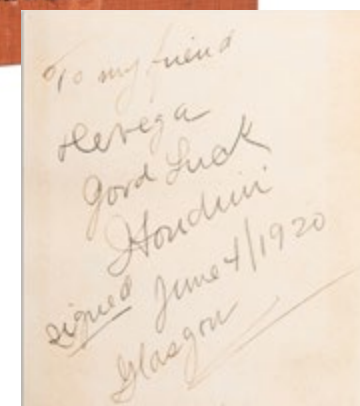 To my friend
Hevega
Good Luck
Houdini
signed June 4/1920
Glasgow